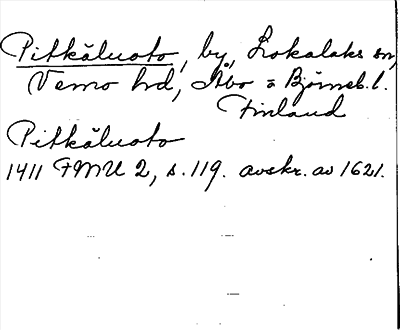 Pitkäluoto, by, Lokalaks sn,
Vemo hd, Åbo o Björneb. l.
Finland
Pitkäluoto
1411 FMU 2, s. 119. avskr. av 1621.